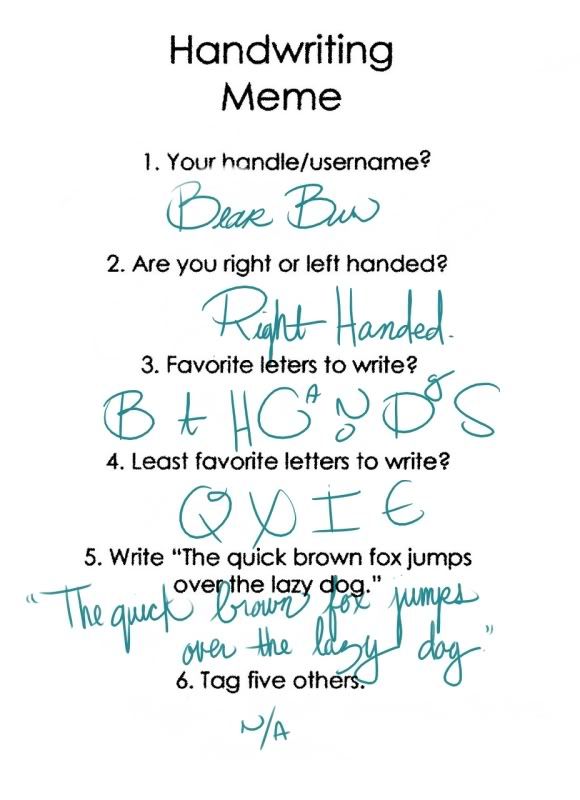 Handwriting
Meme
1. Your handle/username?
Bear Bun
2. Are you right or left handed?
Right Handed.
3. Favorite leters to write?
B t H G A N O D g S
4. Least favorite letters to write?
Q X I E
5. Write “The quick brown fox jumps
over the lazy dog.”
“The quick brown fox jumps
over the lazy dog”
6. Tag five others.
N/A